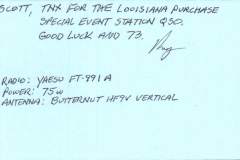 SCOTT, TNX FOR THE LOUISIANA PURCHASE
SPECIAL EVENT STATION QSO.
GOOD LUCK AND 73.
RADIO: YAESU FT-991A
POWER: 75W
ANTENNA: BUTTERNUT HF9V VERTICAL